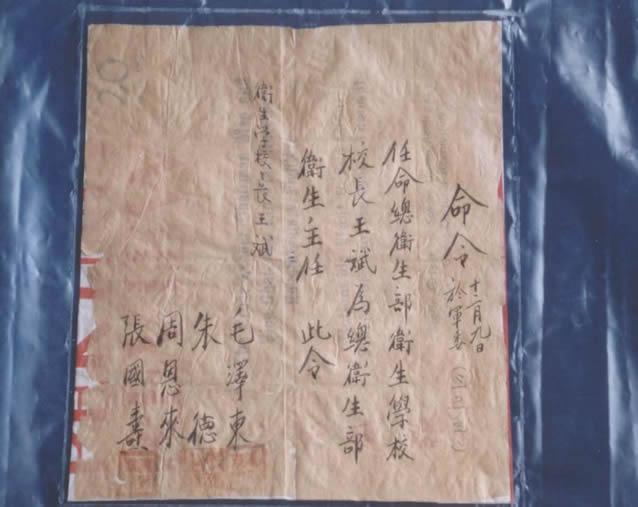 命令
十二月九日
於軍委
任命總衛生部衛生學校
校長王斌為總衛生部
衛生主任 此令
衛生學校校長王斌
毛澤東
朱德
周恩來
張國燾
20